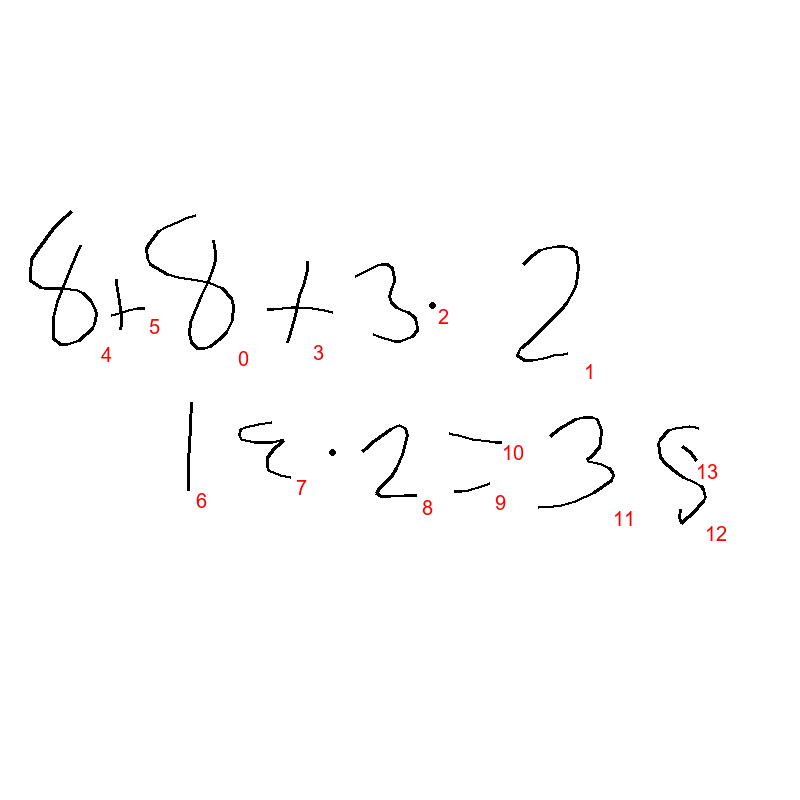 8+8+3·2
4 5 0 3 2 1
1ξ·2=35
6 7 8 10 9 11 13 12